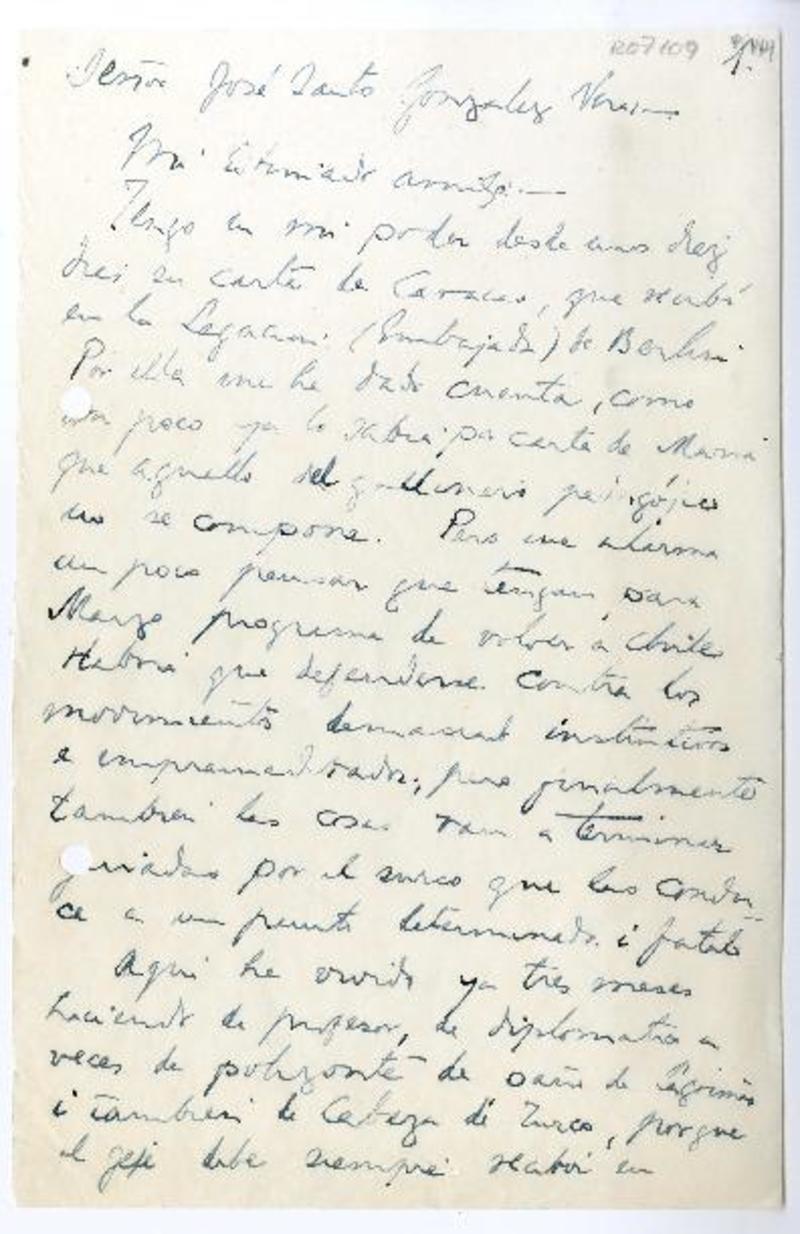 R07109
1.
Señor José Santos Gonzalez Vera.—
Mi estimado amigo.—
Tengo en mi poder desde unos diez
dias su carta de Caracas, que recibí
en la Legacion (Embajada) de Berlin
Por ella me he dado cuenta, como
un poco ya lo sabia por carta de Maria
que aquello del gallinero
no se compone. Pero me alarma
un poco pensar que tengan para
Marzo programa de volver a Chile
Habria que defenderse contra los
movimientos demasiado instintivos
e impremeditados, pero finalmente
tambien las cosas van a terminar
guiadas por el surco que las condu-
ce a un punto determinado i fatal
Aqui he vivido ya tres meses
haciendo de profesor, de diplomatico a
veces de polizonte de paño de lagrimas
i tambien de Cabeza de Turco, porque
el jefe debe siempre recibir en